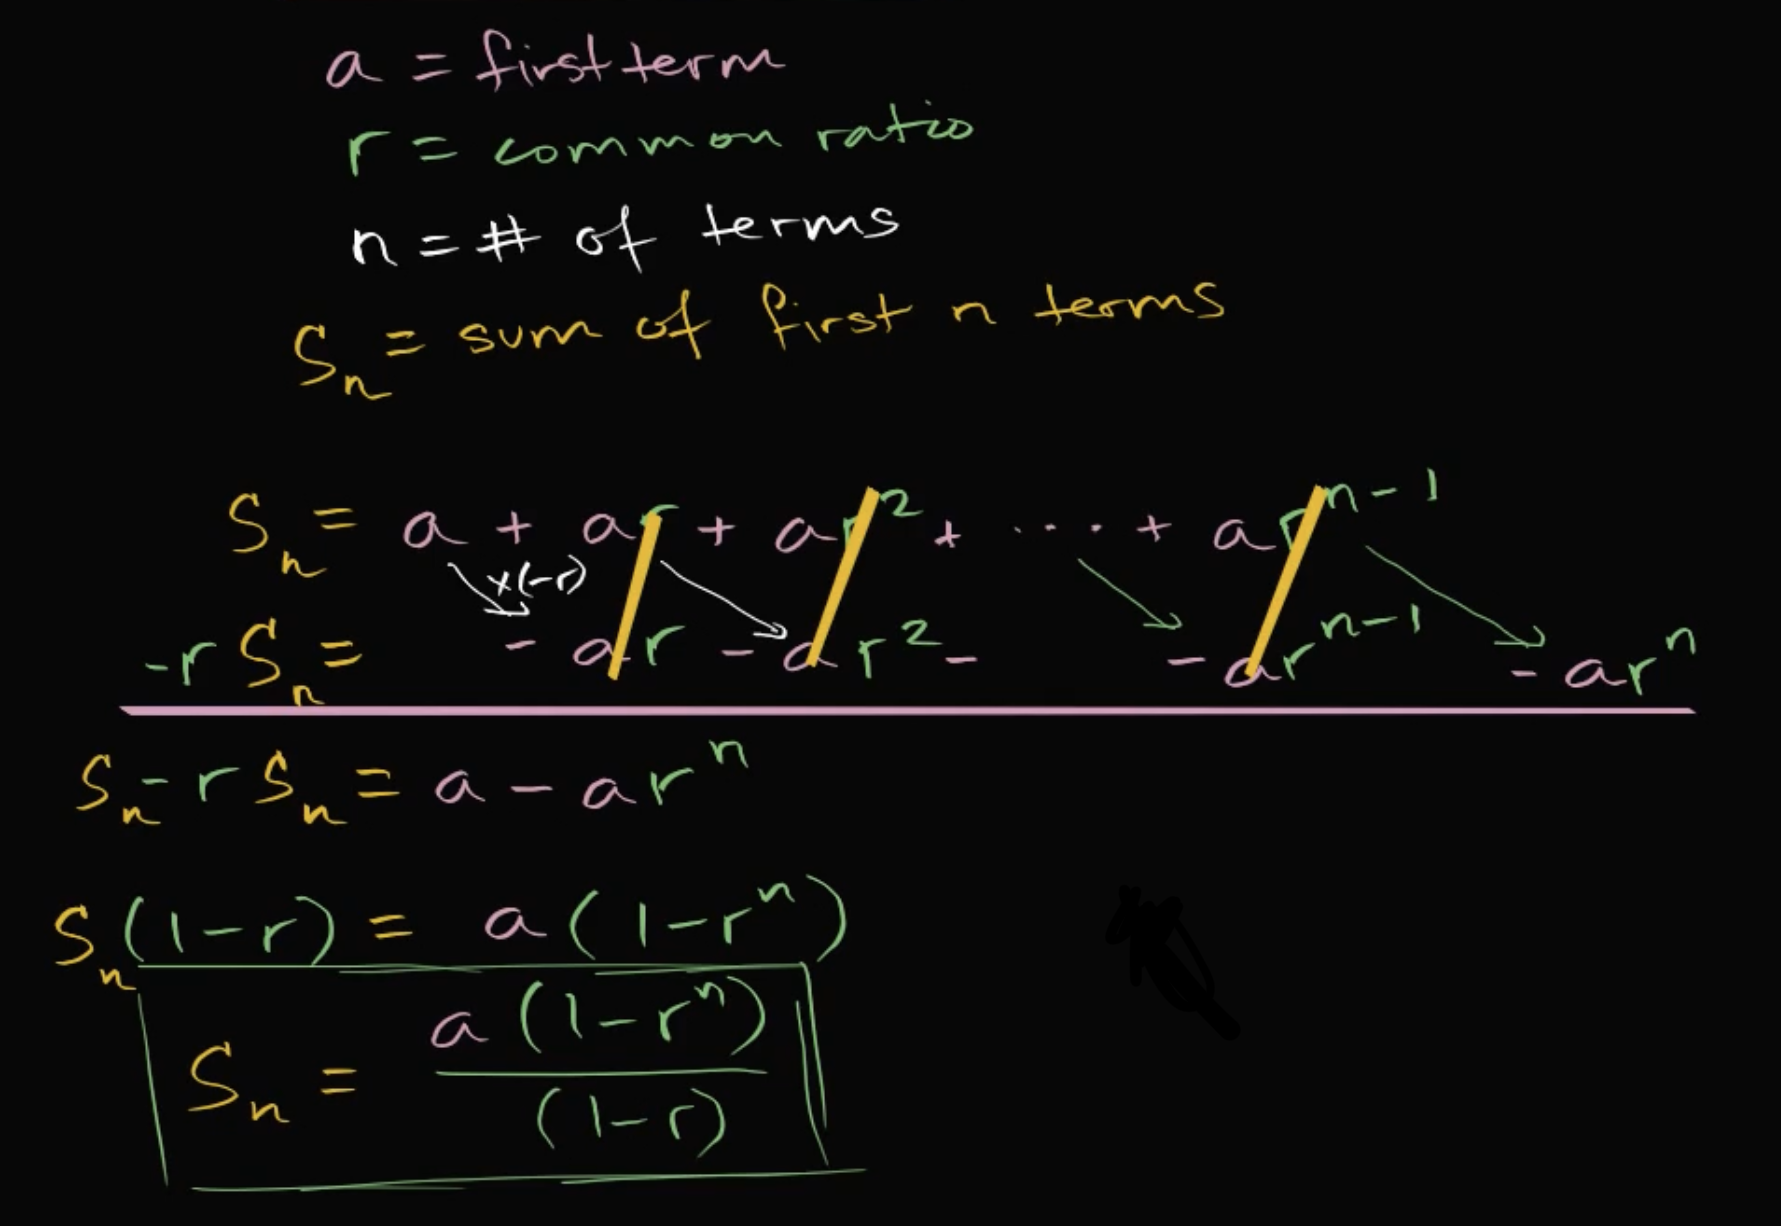 a = first term
r = common ratio
n = # of terms
Sₙ = sum of first n terms
Sₙ = a + ar + ar² + ···· + arⁿ⁻¹
×(-r)
-rSₙ = - ar - ar² - - arⁿ⁻¹ - arⁿ
Sₙ - rSₙ = a - arⁿ
Sₙ(1-r) = a(1-rⁿ)
Sₙ = a(1-rⁿ)/(1-r)